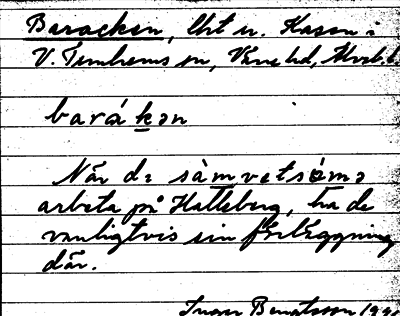 Baracken, lht u. Kasen i
V. Tunhems sn, Väne hd, Älvsb. l.
barákən
När de sàmvetsömə
arbeta på Halleberg, ha de
vanligtvis sin förläggning
där.
Inger Bengtsson